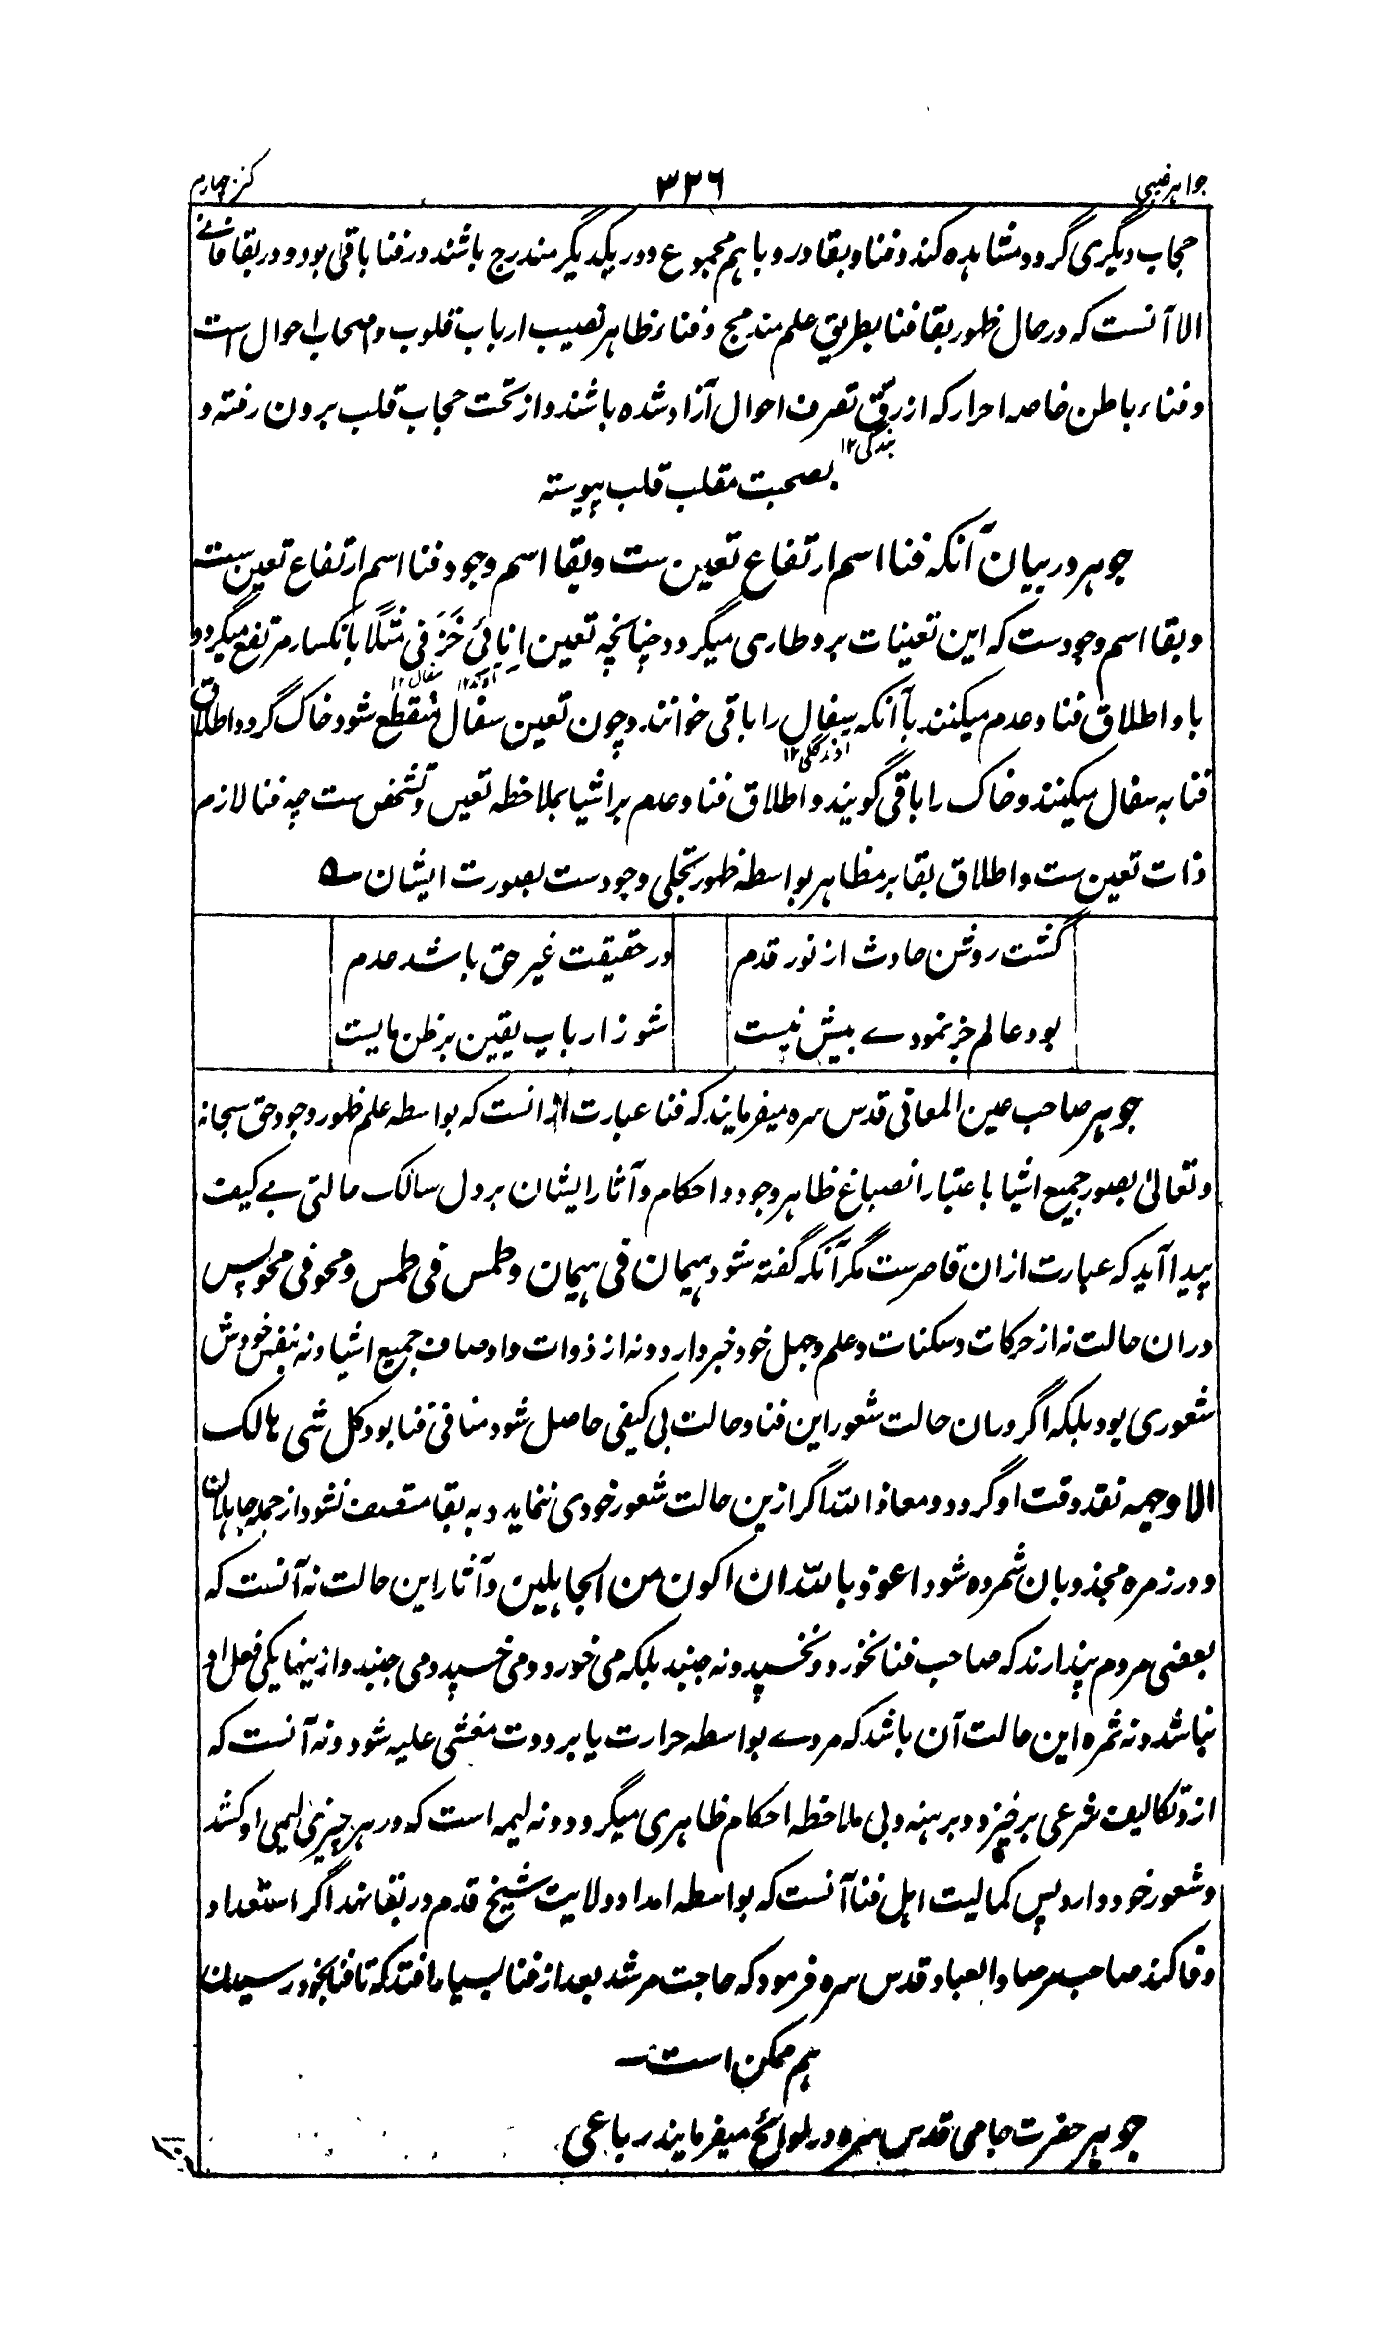 جواہر غیبی
۳۲۶
کنز چہارم
حجاب دیگری گردد مشاہدہ کند و فنا و بقا درو باہم مجموع و در یکدیگر مندرج باشند در فنا باقی بود و در بقا فانے
الا آنست کہ در حال ظہور بقا فنا بطریق علم مندمج و فناء ظاہر نصیب ارباب قلوب و اصحاب احوال است
و فناء باطن خاصہ احرار کہ از رقّ تصرف احوال آزاد شدہ باشند و از تحت حجاب قلب برون رفتہ و
بندگی ۱۲
بصحبت مقلب قلب پیوستہ
جوہر در بیان آنکہ فنا اسم ارتفاع تعین ست و بقا اسم وجود فنا اسم ارتفاع تعین ست
و بقا اسم وجودست کہ این تعینات برو طاری میگردد چنانچہ تعین انائی خَزَفی مثلًا بانکسار مرتفع میگردد
آوند ۱۲ سفال ۱۲
باو اطلاق فنا و عدم میکنند بآنکہ سفال را باقی خوانند و چون تعین سفال منقطع شود خاک گردد اطلاق
آوند گلی ۱۲
فنا بہ سفال میکنند و خاک را باقی گویند و اطلاق فنا و عدم بر اشیا بملاحظہ تعین و تشخص ست چہ فنا لازم
ذات تعین ست و اطلاق بقا بر مظاہر بواسطہ ظہور تجلی وجودست بصورت ایشان ؎
گشت روشن حادث از نور قدم در حقیقت غیر حق باشد عدم
بود عالم جز نمودے بیش نیست شو ز ارباب یقین بر ظن مایست
جوہر صاحب عین المعانی قدس سرہ میفرمایند کہ فنا عبارت از انست کہ بواسطہ علم ظہور وجود حق سبحانہ
و تعالی بصور جمیع اشیا باعتبار انصباغ ظاہر وجود و احکام و آثار ایشان بر دل سالک حالتی بے کیف
پیدا آید کہ عبارت ازان قاصرست مگر آنکہ گفتہ شود ہیمان فی ہیمان و طمس فی طمس و محو فی محو پس
دران حالت نہ از حرکات و سکنات و علم و جہل خود خبر دارد و نہ از ذوات و اوصاف جمیع اشیا و نہ بنفس خودش
شعوری بود بلکہ اگر دران حالت شعور این فنا و حالت بی کیفی حاصل شود منافی فنا بود کل شی ہالک
الا وجہہ نقد وقت او گردد و معاذ اللہ اگر ازین حالت شعور خودی ننماید و بہ بقا متصف نشود از جملہ جاہلان
و در زمرہ مجذوبان شمردہ شود اعوذ باللہ ان اکون من الجاہلین و آثار این حالت نہ آنست کہ
بعضی مردم پندارند کہ صاحب فنا نخورد و نخسپد و نہ جنبد بلکہ می خورد و می خسپد و می جنبد و ازینہا یکی فعل او
نباشد و نہ ثمرہ این حالت آن باشد کہ مردے بواسطہ حرارت یا برودت مغشی علیہ شود و نہ آنست کہ
از و تکالیف شرعی برخیزد و برہنہ و بی ملاحظہ احکام ظاہری میگردد و نہ است کہ در ہر چیزی او کشد
و شعور خود دارد پس کمالیت اہل فنا آنست کہ بواسطہ امداد ولایت شیخ قدم در بقا نہد اگر استعداد
وفا کند صاحب مرصاد العباد قدس سرہ فرمود کہ حاجت مرشد بعد از فنا بسیار افتد کہ تا فنا بخود رسیدن
ہم ممکن است
جوہر حضرت جامی قدس سرہ در لوائح میفرمایند رباعی